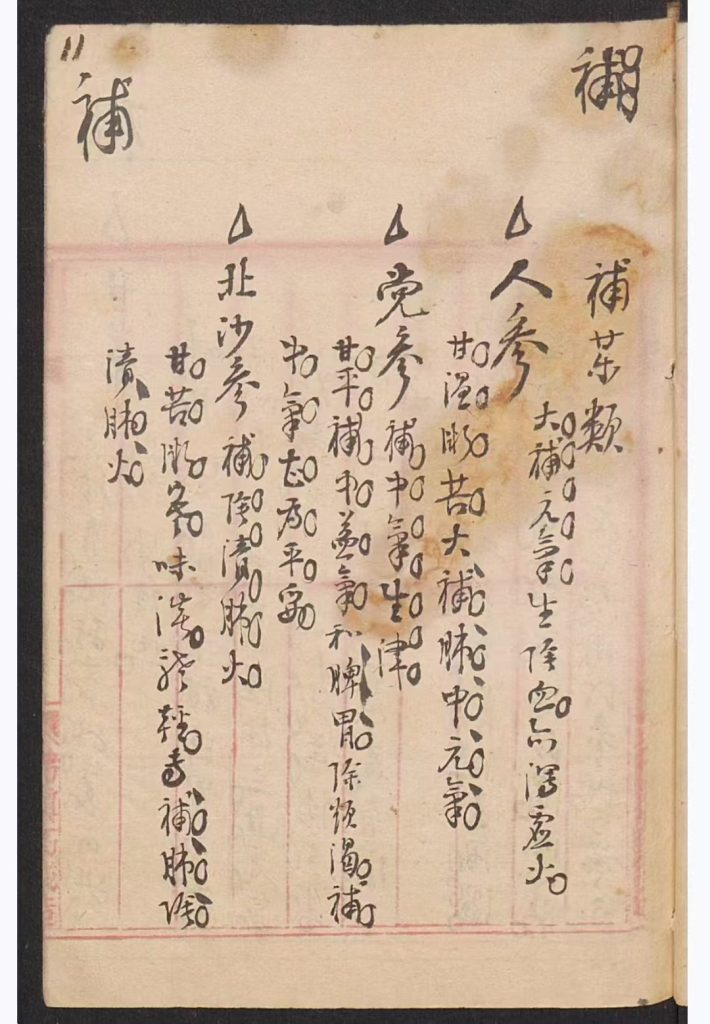 補
補藥類
人參 大補元氣生陰血亦瀉虛火
甘溫微苦大補肺中元氣
党參 補中氣生津
甘平補中益氣和脾胃除煩渴補
中氣甚為平妥
北沙參 補陰清肺火
甘苦微寒味淡體輕專補肺陰
清肺火
補
11